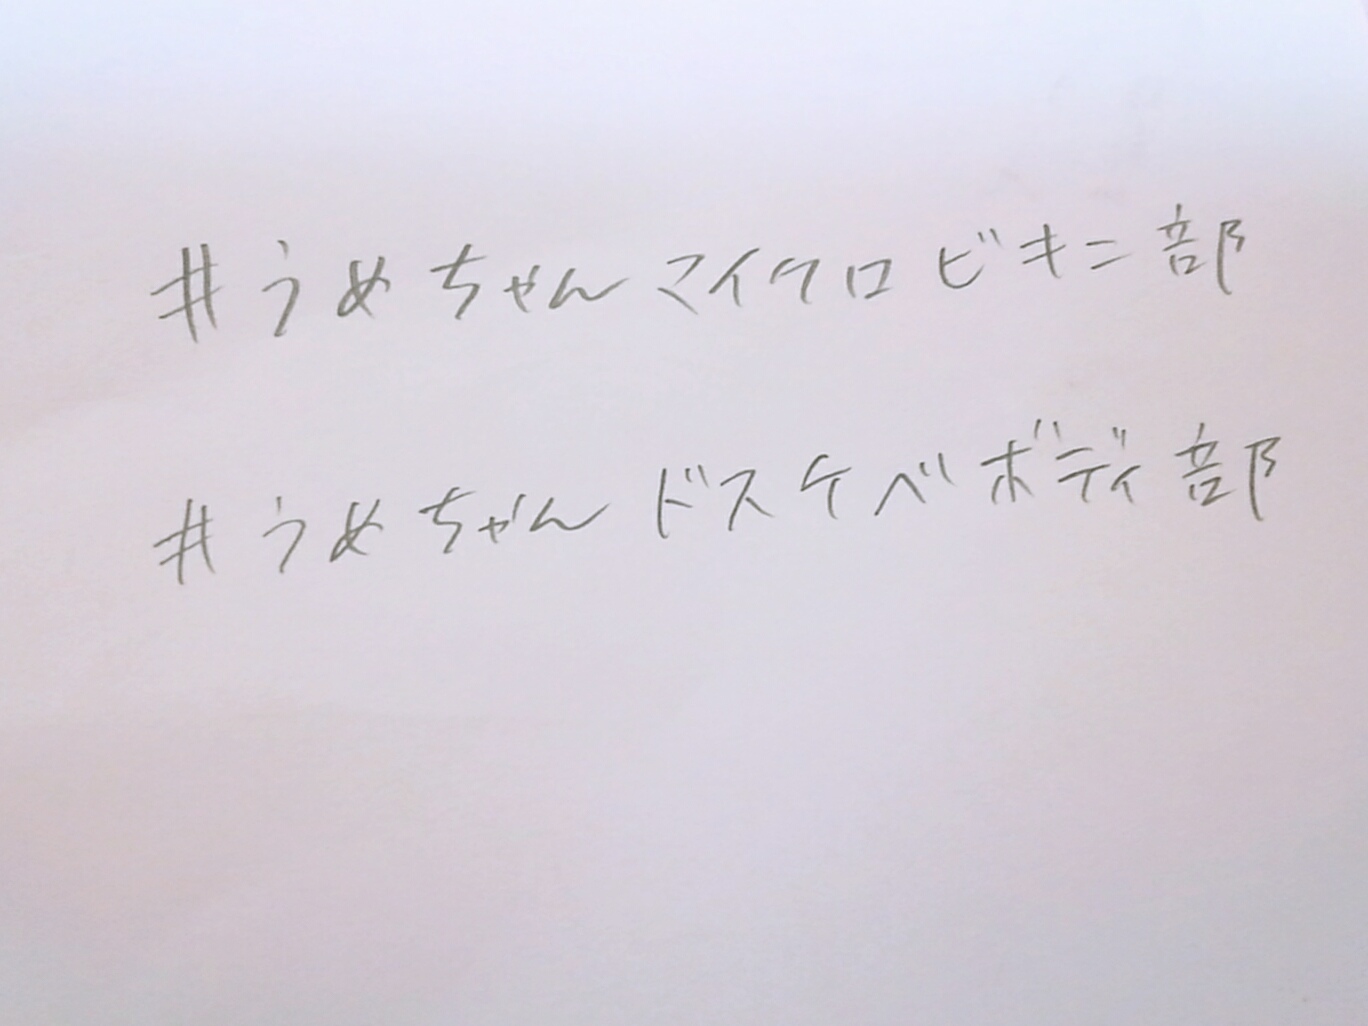 #うめちゃんマイクロビキニ部
#うめちゃんドスケベボディ部